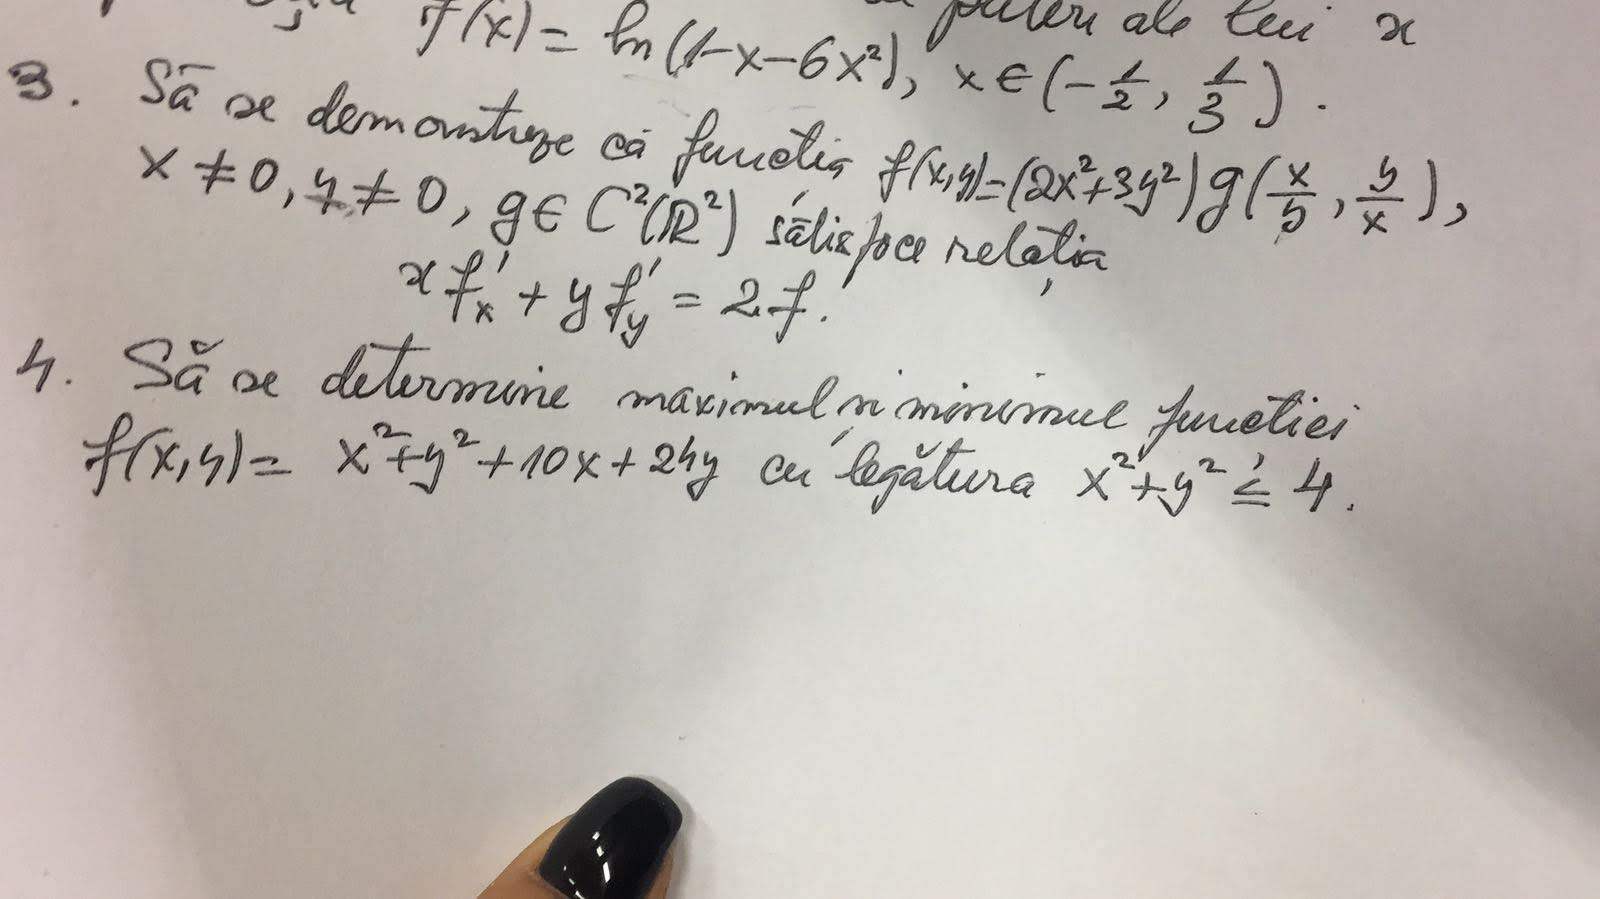 f(x) = ln(1-x-6x²), x ∈ (-1/2, 1/3).
puteri ale lui x
3. Să se demonstreze că funcția f(x,y)=(2x²+3y²)g(x/y, y/x),
x ≠ 0, y ≠ 0, g ∈ C²(ℝ²) satisface relația
x f'x + y f'y = 2f.
4. Să se determine maximul și minimul funcției
f(x,y) = x²+y²+10x+24y cu legătura x²+y² ≤ 4.